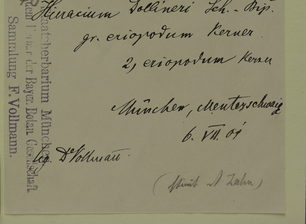 Hieracium Dollineri Sch.-Bip.
gr. eriopodum Kerner
2) eriopodum Kerner
München, Menterschwaig
6. VII. 01
lg. Dr Vollmann
(stimt A Zahn)
Staatsherbarium München
der Bayer. Botan. Gesellschaft
Sammlung F. Vollmann.